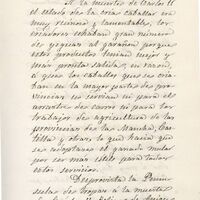 A la muerte de Carlos II
el estado de la cria caballar era
muy ruinoso y lamentable, los
criadores echaban gran número
de yeguas al garañon porque
estos productos tenian mejor y
mas pronta salida, en razon,
á que los caballos que se cria-
ban en la mayor parte de pro-
vincias no servian ni para el
arrastre de carros ni para los
trabajos de agricultura de las
provincias de la Mancha, Cas-
tilla y otras, lo que hacia que
se adoptase el ganado mular
por ser mas util para todos
estos servicios.
Desprovista la Penin-
sula de tropas á la muerte